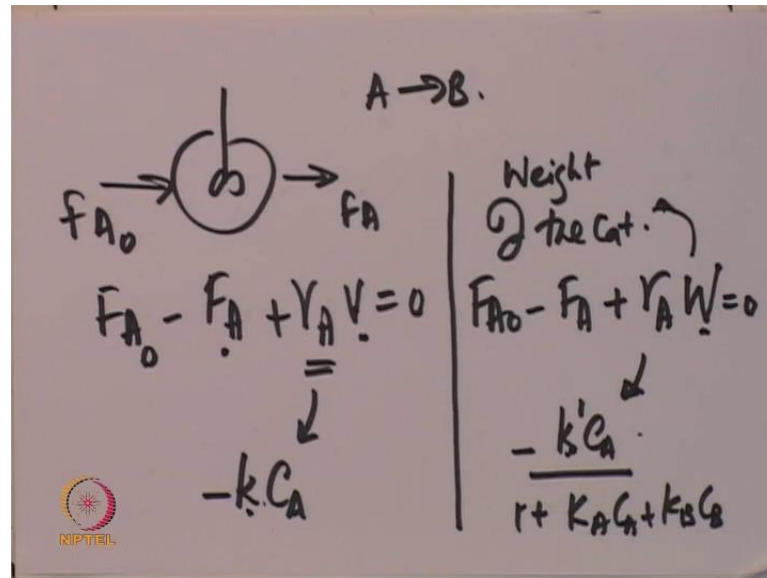 A → B.
F_A₀ → → F_A
F_A₀ - F_A + r_A V = 0
-k C_A
Weight
of the Cat.
F_A₀ - F_A + r_A W = 0
- k' C_A
1 + K_A C_A + K_B C_B
NPTEL